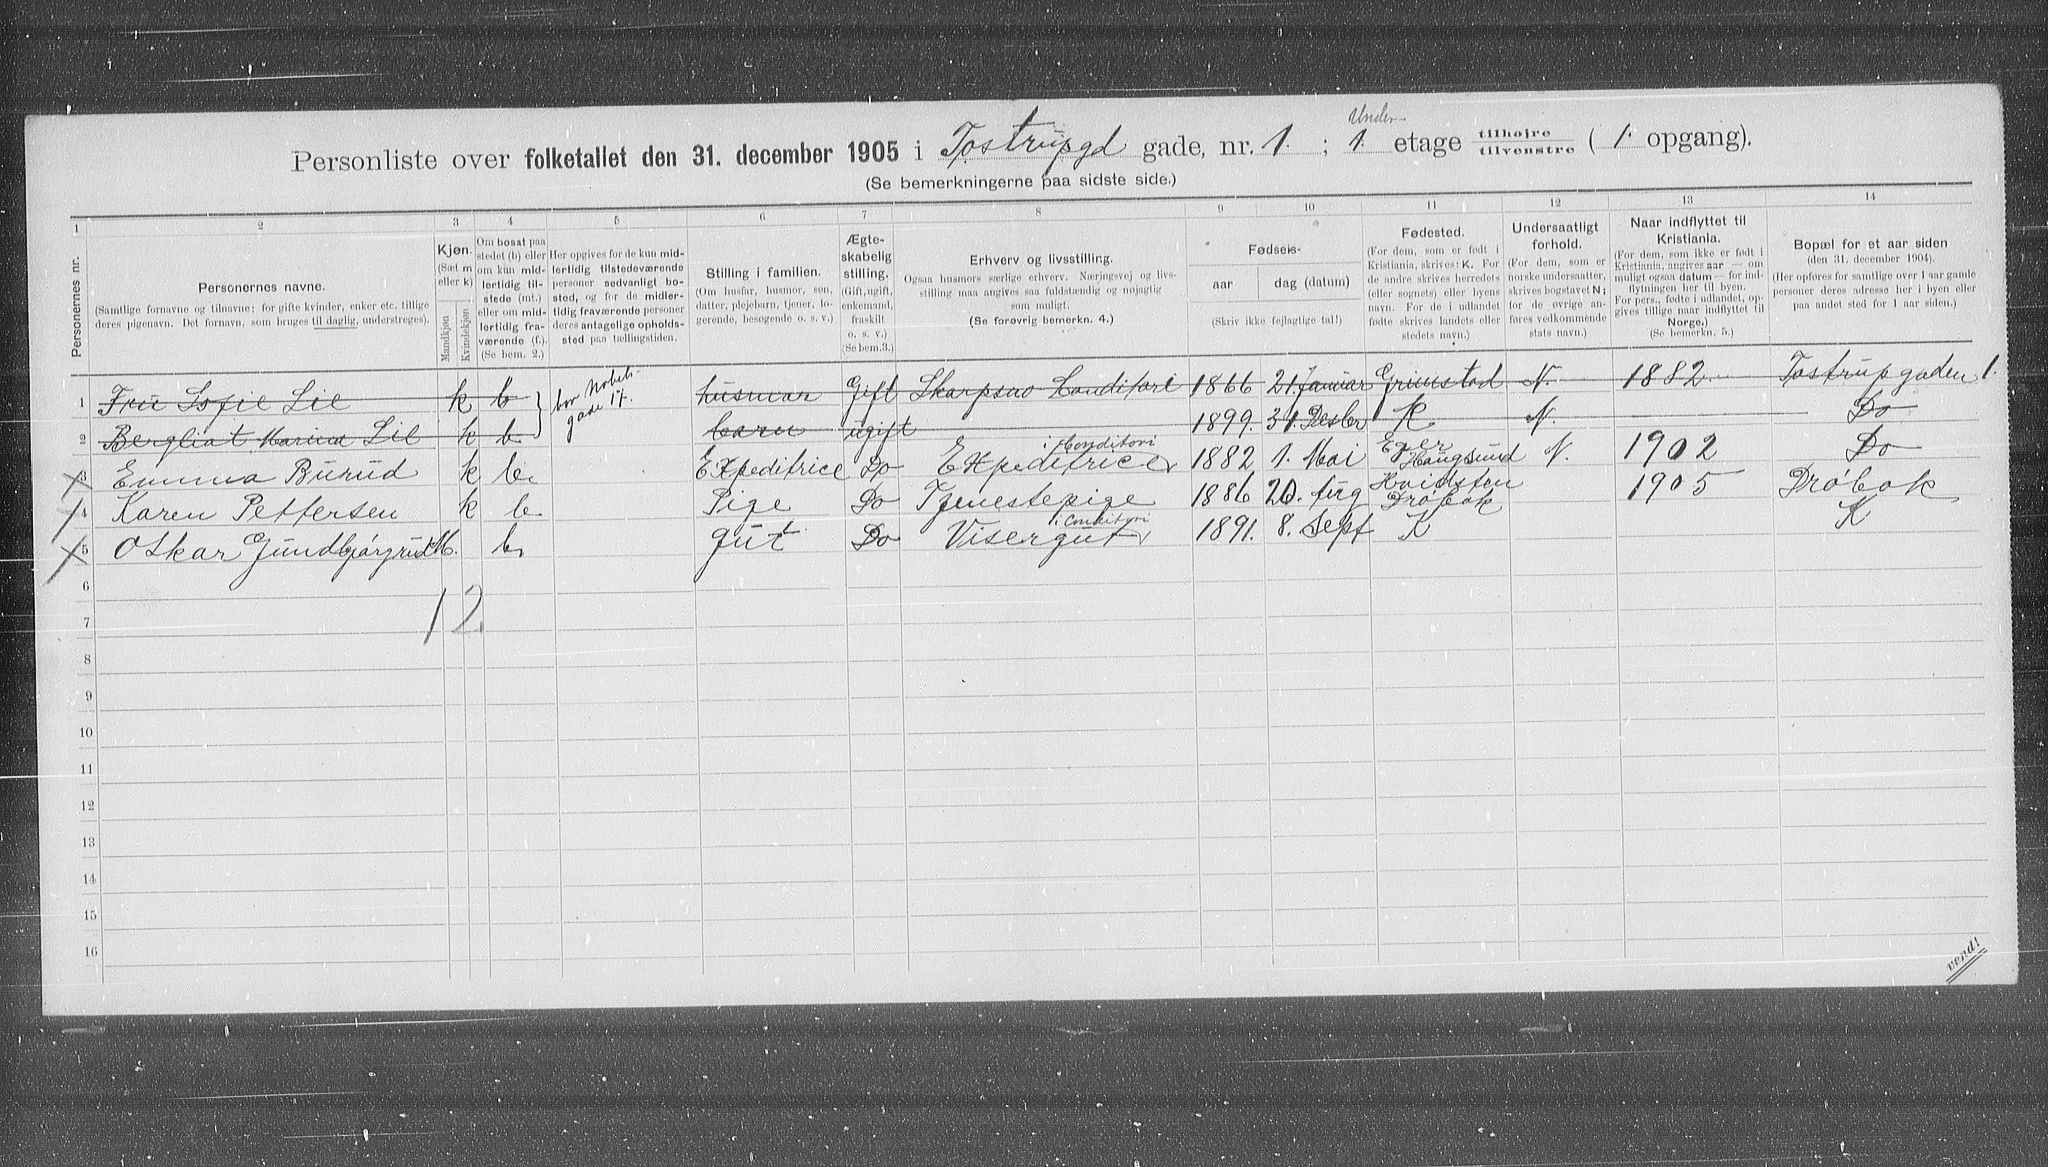 Under-
Personliste over folketallet den 31. december 1905 i Tostrupgd gade, nr. 1. ; 1. etage tilhøjre tilvenstre ( 1. opgang).
(Se bemerkningerne paa sidste side.)
1 2 3 4 5 6 7 8 9 10 11 12 13 14
Personernes nr.
Personernes navne.
(Samtlige fornavne og tilnavne; for gifte kvinder, enker etc. tillige
deres pigenavn. Det fornavn, som bruges til daglig, understreges).
Kjøn.
(Sæt m
eller k)
Mandkjøn
Kvindekjøn
Om bosat paa
stedet (b) eller
om kun mid-
lertidig til-
stede (mt.)
eller om mid-
lertidig fra-
værende (f.).
(Se bem. 2.)
Her opgives for de kun mid-
lertidig tilstedeværende
personer sedvanligt bo-
sted, og for de midler-
tidig fraværende personer
deres antagelige opholds-
sted paa tællingstiden.
Stilling i familien.
(Om husfar, husmor, søn,
datter, plejebarn, tjener, lo-
gerende, besøgende o. s. v.)
Ægte-
skabelig
stilling.
(Gift, ugift,
enkemand,
fraskilt
o. s. v.)
(Se bem.3.)
Erhverv og livsstilling.
Ogsaa husmors særlige erhverv. Næringsvej og livs-
stilling maa angives saa fuldstændig og nøjagtig
som muligt.
(Se forøvrig bemerkn. 4.)
Fødsels-
aar dag (datum)
(Skriv ikke fejlagtige tal!)
Fødested.
(For dem, som er født i
Kristiania, skrives: K. For
de andre skrives herredets
(eller sognets) eller byens
navn. For de i udlandet
fødte skrives landets eller
stedets navn.)
Undersaatligt
forhold.
(For dem, som er
norske undersaatter,
skrives bogstavet N;
for de øvrige an-
føres vedkommende
stats navn.)
Naar indflyttet til
Kristiania.
(For dem, som ikke er født i
Kristiania, angives aar — om
muligt ogsaa datum — for ind-
flytningen her til byen.
For pers., fødte i udlandet, op-
gives tillige naar indflyttet til
Norge.)
(Se bemerkn. 5.)
Bopæl for et aar siden
(den 31. december 1904).
(Her opføres for samtlige over 1 aar gamle
personer deres adresse her i byen eller
paa andet sted for 1 aar siden.)
1 Fru Sofie Lie k b bor Nobels- gade 17. husmor Gift Skarpsno Konditori 1866 21 Januar Grimstad N. 1882 Tostrupgaden 1.
2 Bergliat Marina Lie k b barn ugift 1899. 31. Desbr K N. Do
3 Emma Burud k b. Expeditrice Do Expeditrice i Conditori 1882 1. Mai Eger Haugsund N. 1902 Do
4 Karen Pettersen k b Pige Do Tjenestepige 1886 20. Aug Hvidsten Drøbak 1905 Drøbak
5 Oskar Gundbjørgrud M. b. gut Do Visergut i Conditori 1891. 8. Sept K K
6
12
7
8
9
10
11
12
13
14
15
16
vend!